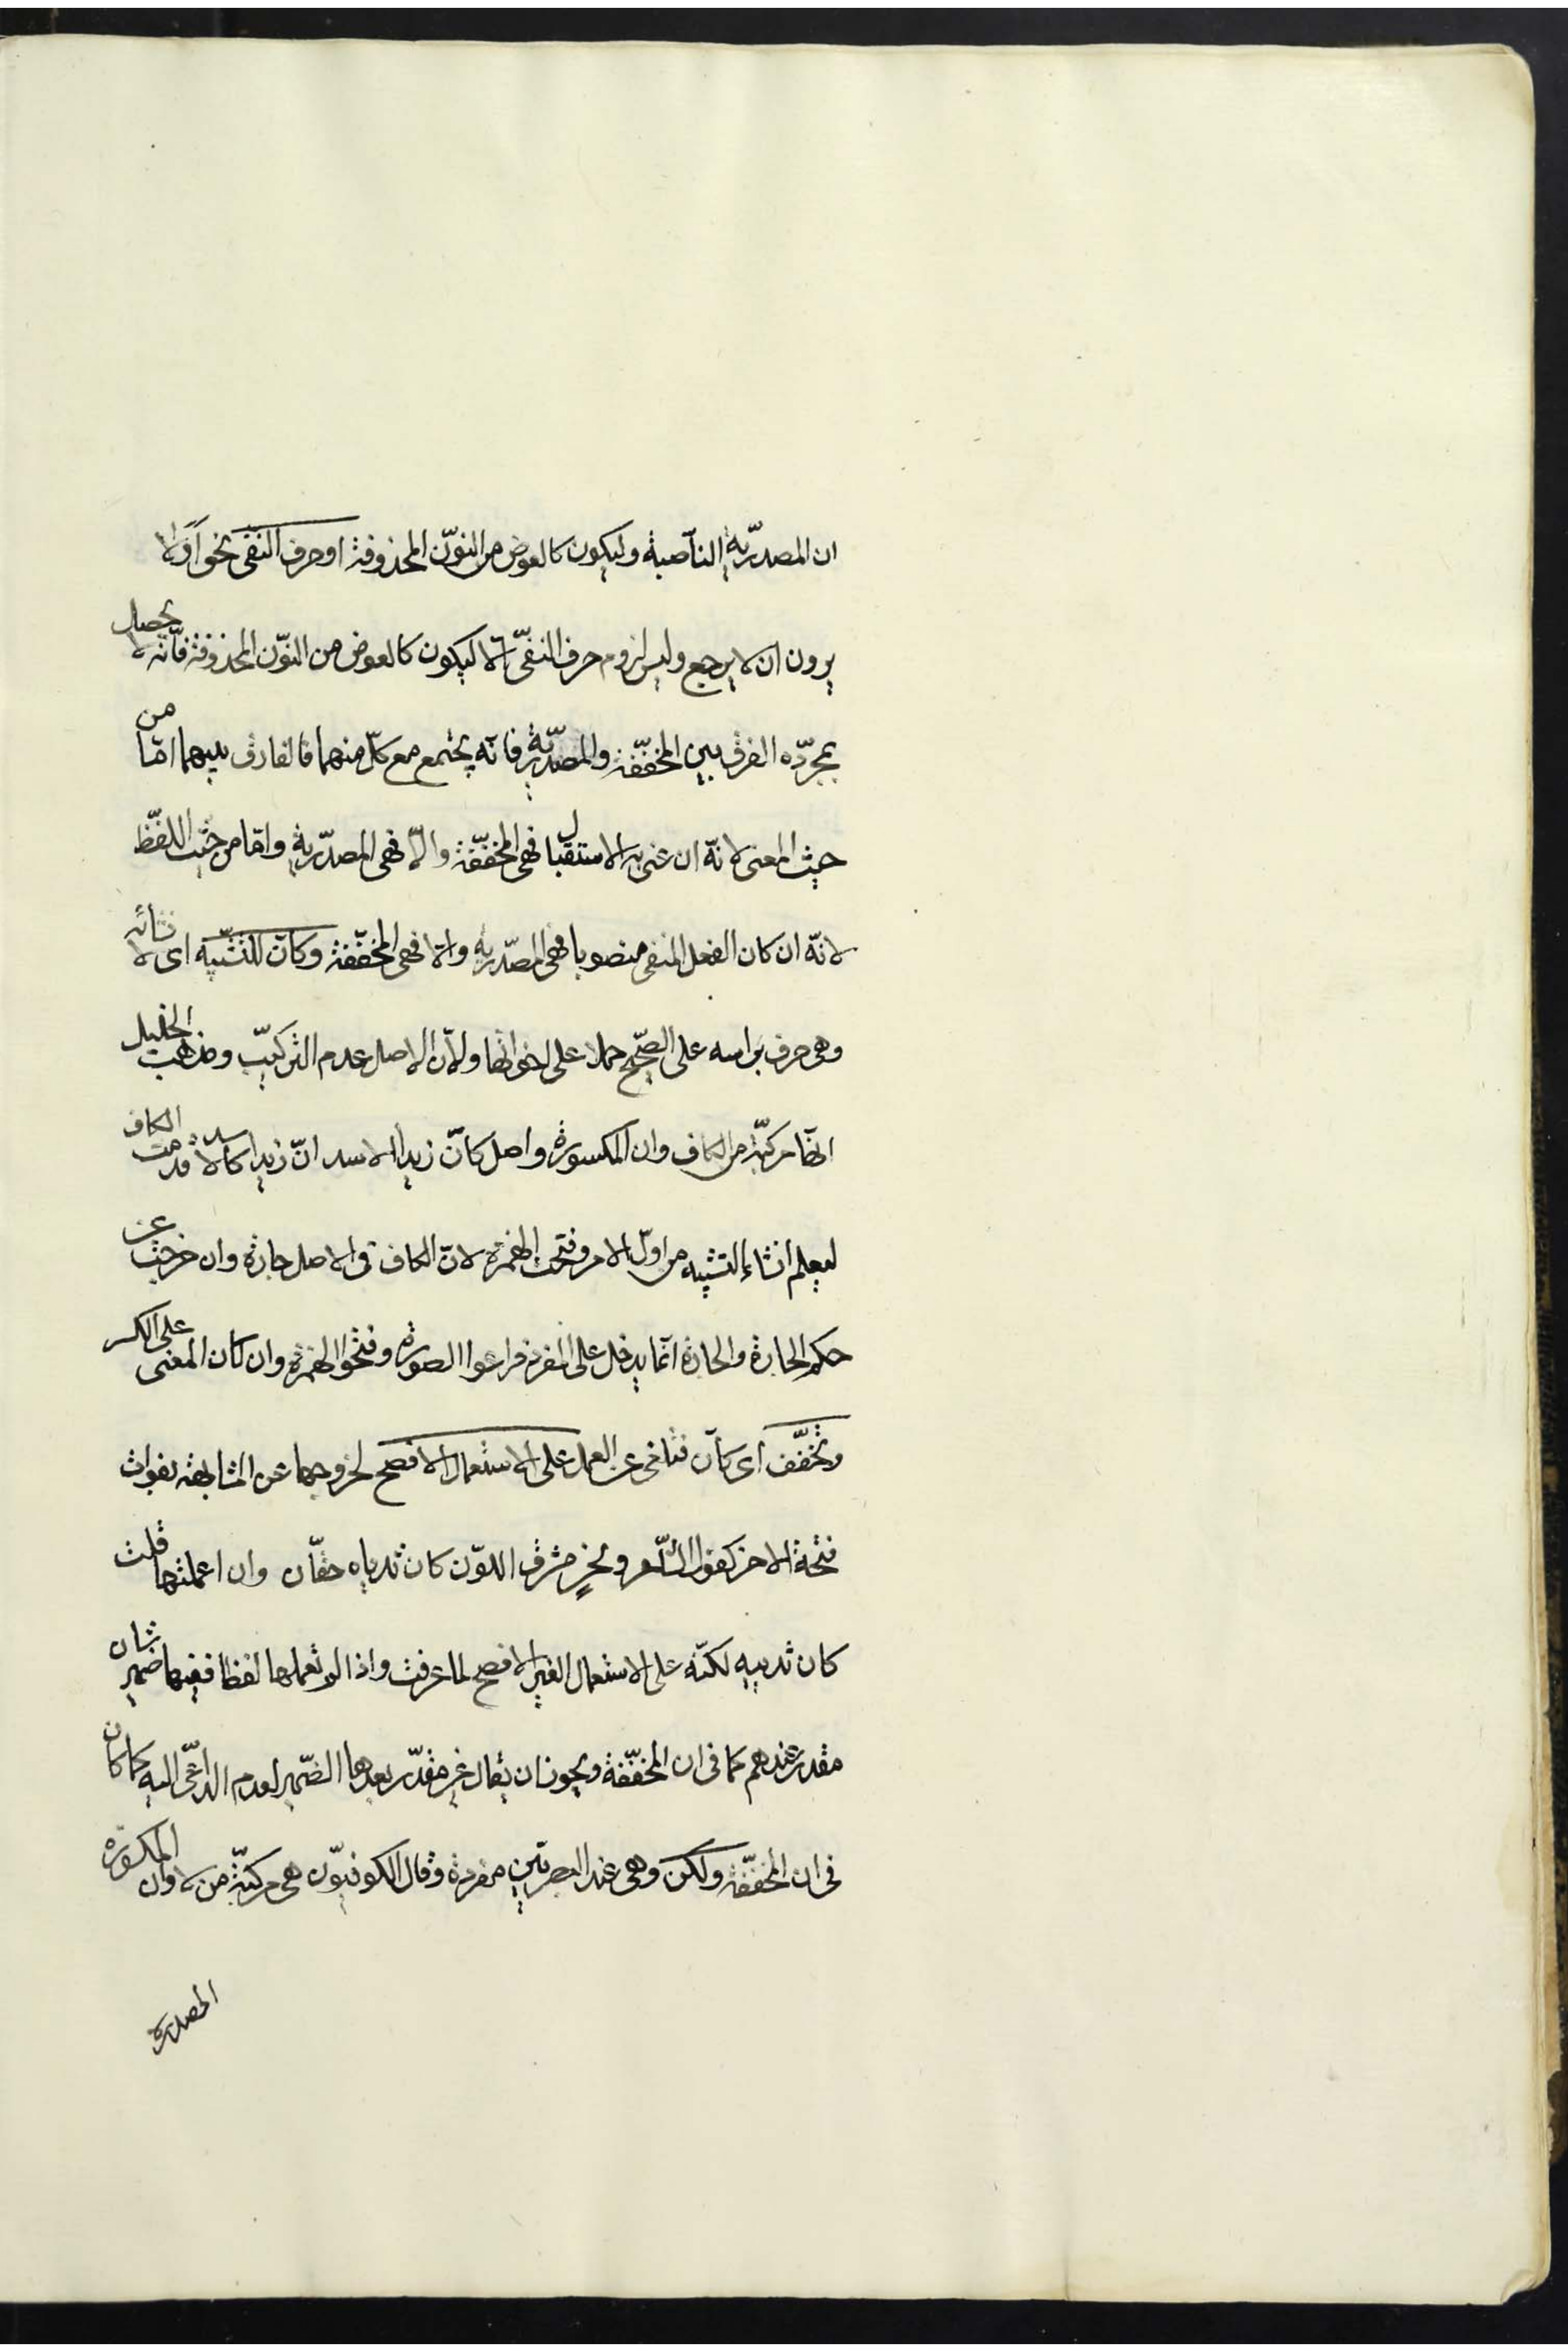 ان المصدرية الناصبة وليكون كالعوض من النون المحذوفة او حرف النفى نحو افلا
يرون ان لا يرجع وليس لزوم حرف النفى الا ليكون كالعوض من النون المحذوفة فانه لا يحصل
بمجرده الفرق بين المخففة والمصدرية فانه يجتمع مع كل منهما فالفارق بينهما اما من
حيث المعنى لانه ان عنى به الاستقبال فهى المخففة والا فهى المصدرية واما من حيث اللفظ
لانه ان كان الفعل المنفى منصوبا فهى المصدرية والا فهى المخففة وكان للتشبيه اى لانشائه
وهى حرف براسه على الصحيح حملا على اخواتها ولان الاصل عدم التركيب ومذهب الخليل
انها مركبة من الكاف وان المكسورة واصل كان زيدا الاسد ان زيدا كالاسد قدمت الكاف
ليعلم انشاء التشبيه من اول الامر وفتحت الهمزة لان الكاف فى الاصل جارة وان خرجت عن
حكم الجارة والجارة انما يدخل على المفرد فراعوا الصورة وفتحوا الهمزة وان كان المعنى على الكسر
وتخفف اى كان فتلغى عن العمل على الاستعمال الافصح لخروجها عن المشابهة بفوات
فتحة الاخر كقول الشاعر ونحر مشرق اللون كان ثدياه حقان وان اعملتها قلت
كان ثدييه لكنه على الاستعمال الغير الافصح لما عرفت واذا لم تعملها لفظا ففيها ضمير شان
مقدر عندهم كما فى ان المخففة ويجوز ان يقال غير مقدر بعدها الضمير لعدم الداعى اليه كما كان
فى ان المخففة ولكن وهى عند البصريين مفردة وقال الكوفيون هى مركبة من لا وان المكسورة
المصدرة